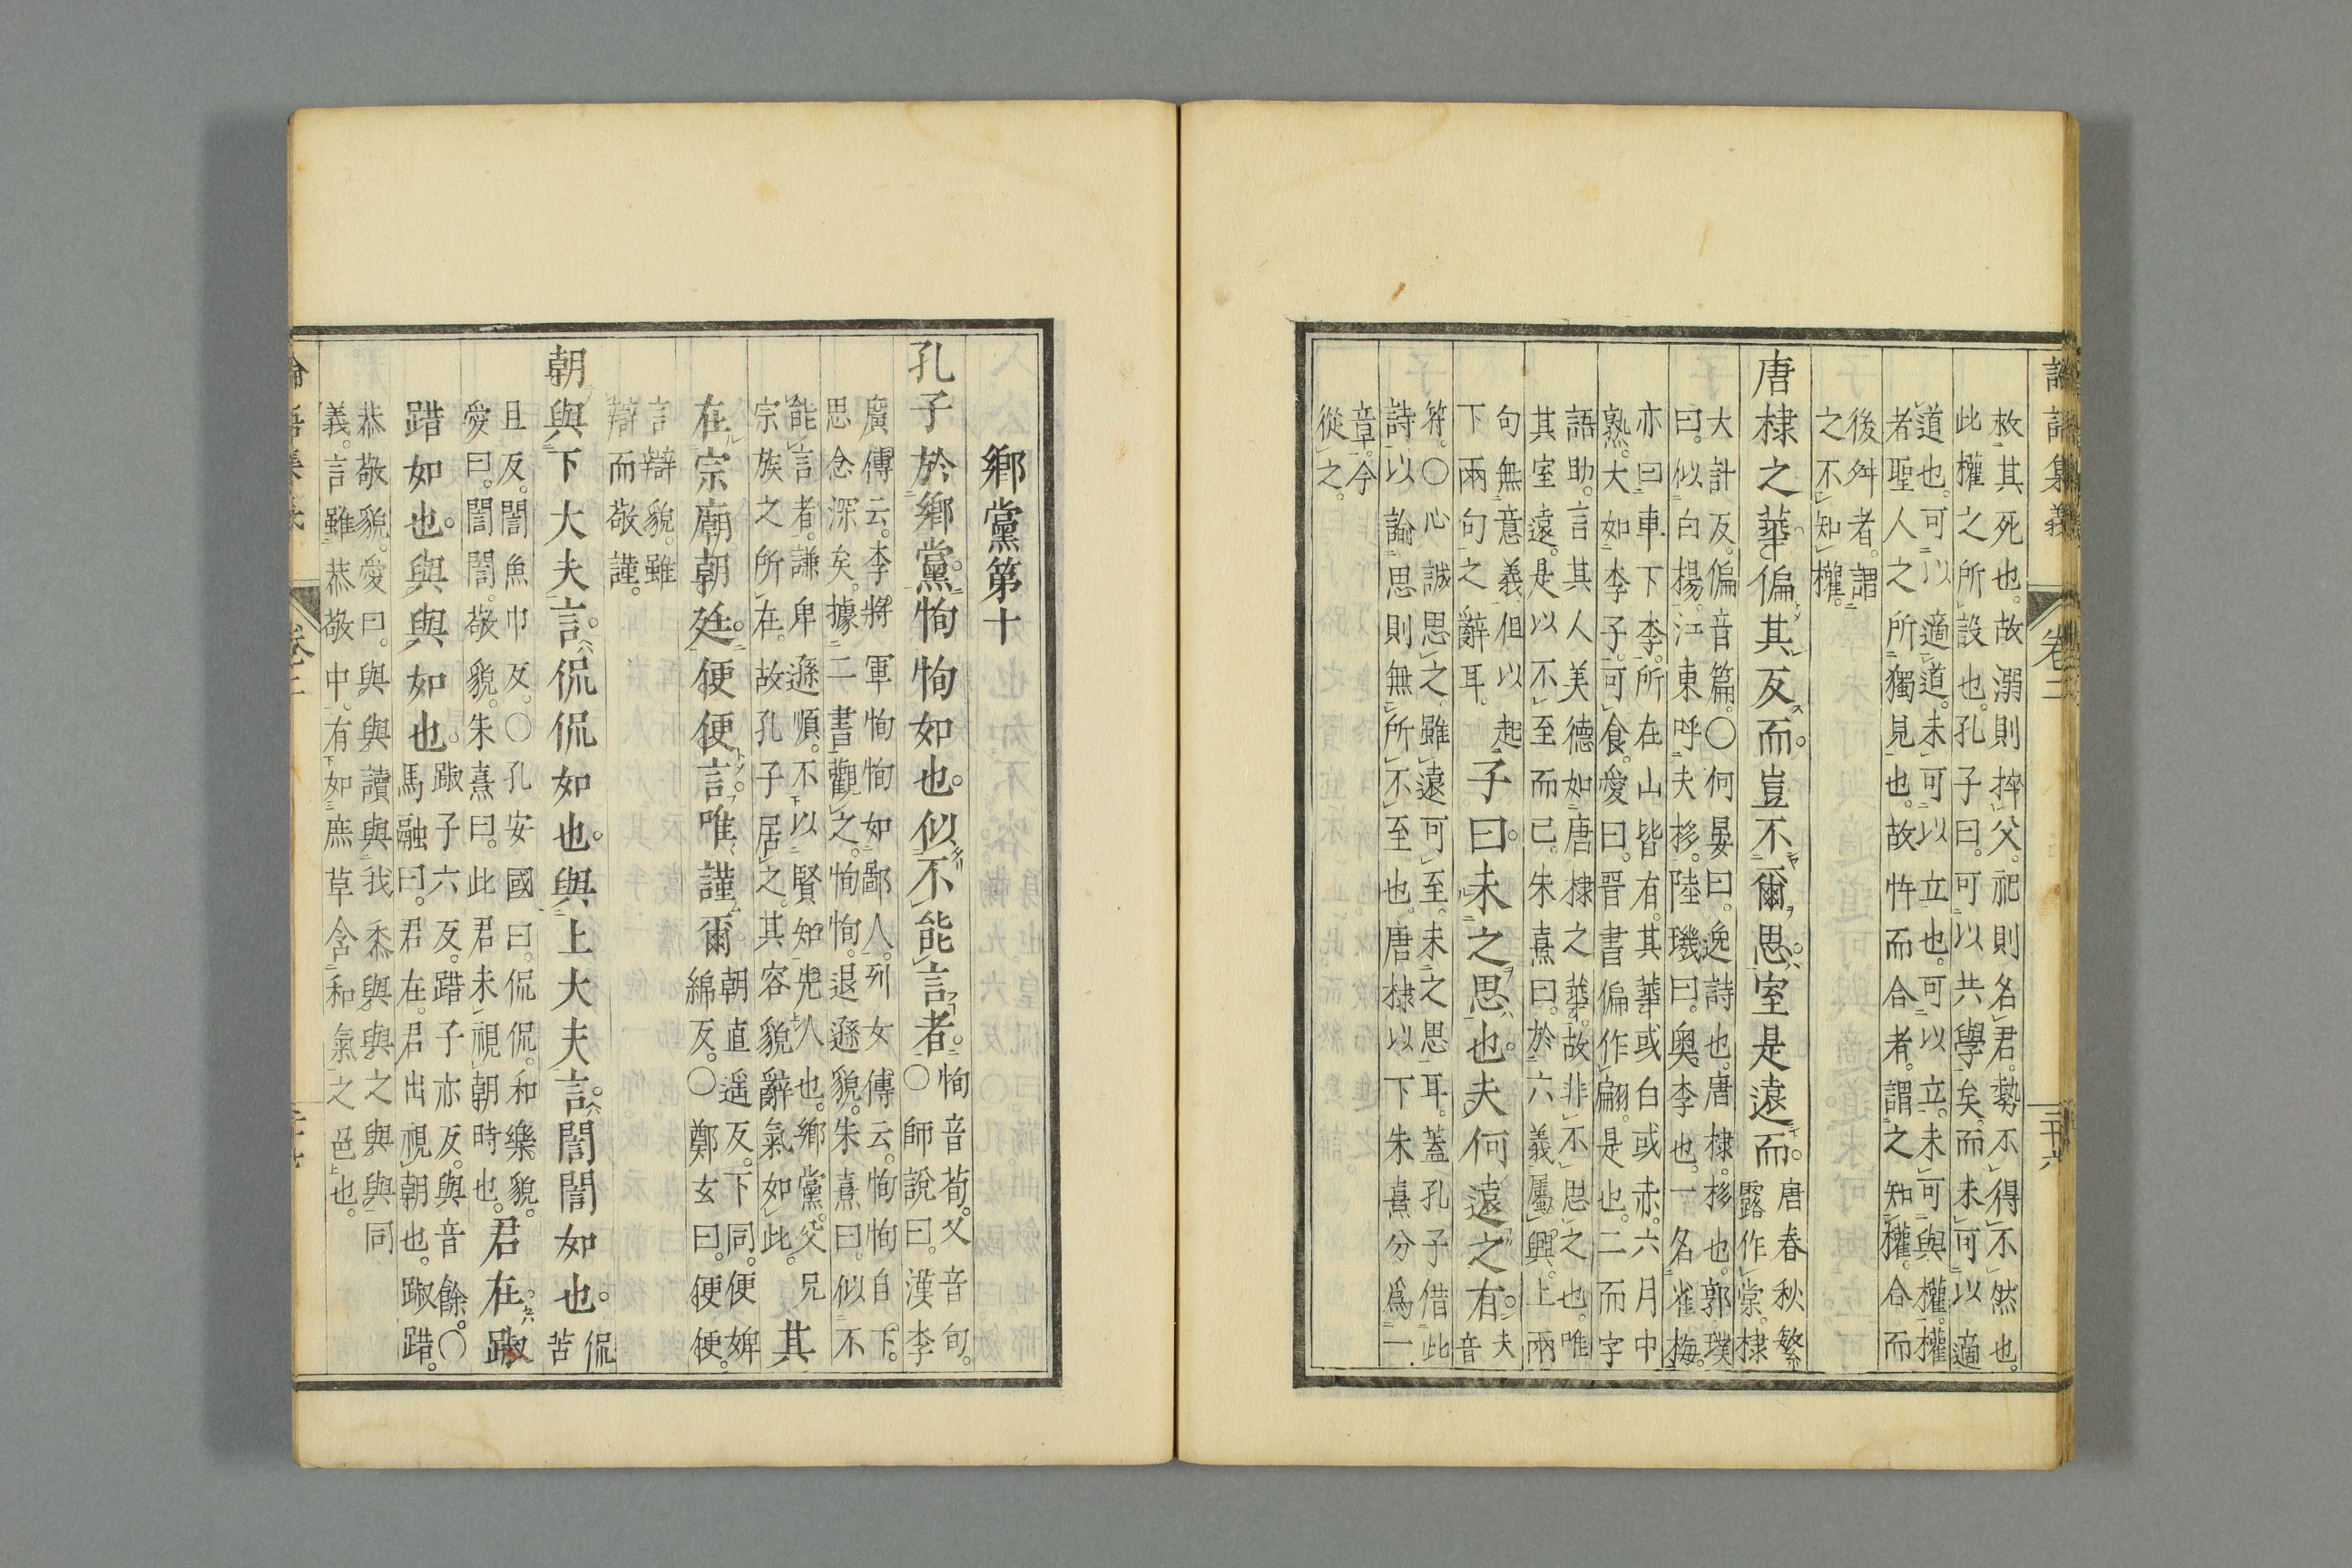 論語集義
卷二
三十六
救其死也。故溺則捽父。祀則名君。勢不得不然也。
此權之所設也。孔子曰。可以共學矣。而未可以適
道也。可以適道。未可以立也。可以立。未可與權。權
者聖人之所獨見也。故忤而合者。謂之知權。合而
後舛者。謂
之不知權。
唐棣之華偏其反而。豈不爾思。室是遠而。
唐春秋繁
露作棠。棣
大計反。偏音篇。○何晏曰。逸詩也。唐棣。栘也。郭璞
曰。似白楊。江東呼夫栘。陸璣曰。奧李也。一名雀梅。
亦曰車下李。所在山皆有。其華或白或赤。六月中
熟。大如李子。可食。愛曰。晋書偏作翩。是也。二而字
語助。言其人美德如唐棣之華。故非不思之也。唯
其室遠。是以不至而已。朱熹曰。於六義屬興。上兩
句無意義。但以起
下兩句之辭耳。
子曰。未之思也。夫何遠之有。
夫
音
符。○心誠思之。雖遠可至。未之思耳。蓋孔子借此
詩以諭思則無所不至也。唐棣以下朱熹分爲一
章。今
從之。
鄉黨第十
孔子於鄉黨。恂恂如也。似不能言者。
恂音荀。又音旬。
○師說曰。漢李
廣傳云。李將軍恂恂如鄙人。列女傳云。恂恂自下。
思念深矣。據二書觀之。恂恂。退遜貌。朱熹曰。似不
能言者。謙卑遜順。不以賢知先人也。鄉黨。父兄
宗族之所在。故孔子居之。其容貌辭氣如此。
其
在宗廟朝廷。便便言。唯謹爾
朝直遥反。下同。便婢
綿反。○鄭玄曰。便便。
言辯貌。雖
辯而敬謹。
朝與下大夫言。侃侃如也。與上大夫言。誾誾如也。
侃
苦
且反。誾魚巾反。○孔安國曰。侃侃。和樂貌。
愛曰。誾誾。敬貌。朱熹曰。此君未視朝時也。
君在。踧
踖如也。與與如也。
踧子六反。踖子亦反。與音餘。○
馬融曰。君在。君出視朝也。踧踖。
恭敬貌。愛曰。與與讀與我黍與與之與與同
義。言雖恭敬中。有如庶草含和氣之邑也。